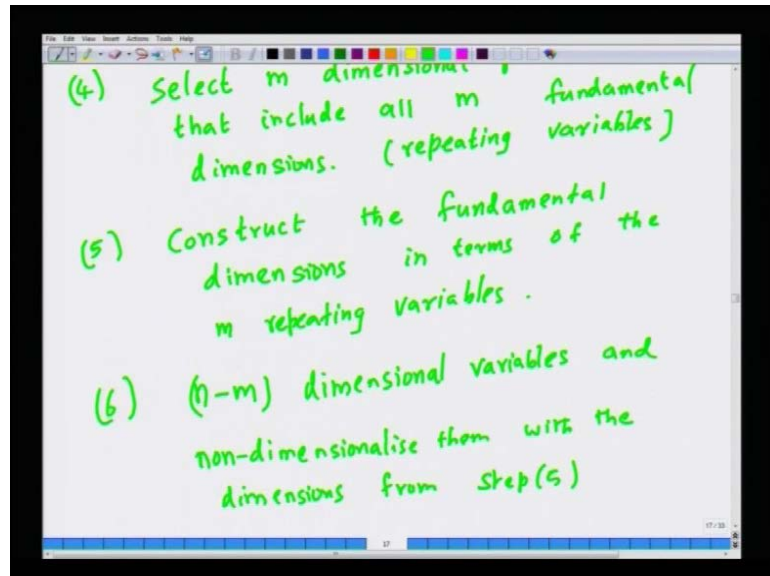 File Edit View Insert Actions Tools Help
(4) Select m dimensional
that include all m fundamental
dimensions. (repeating variables)
(5) Construct the fundamental
dimensions in terms of the
m repeating variables.
(6) (n-m) dimensional variables and
non-dimensionalise them with the
dimensions from step(5)
17/33
17